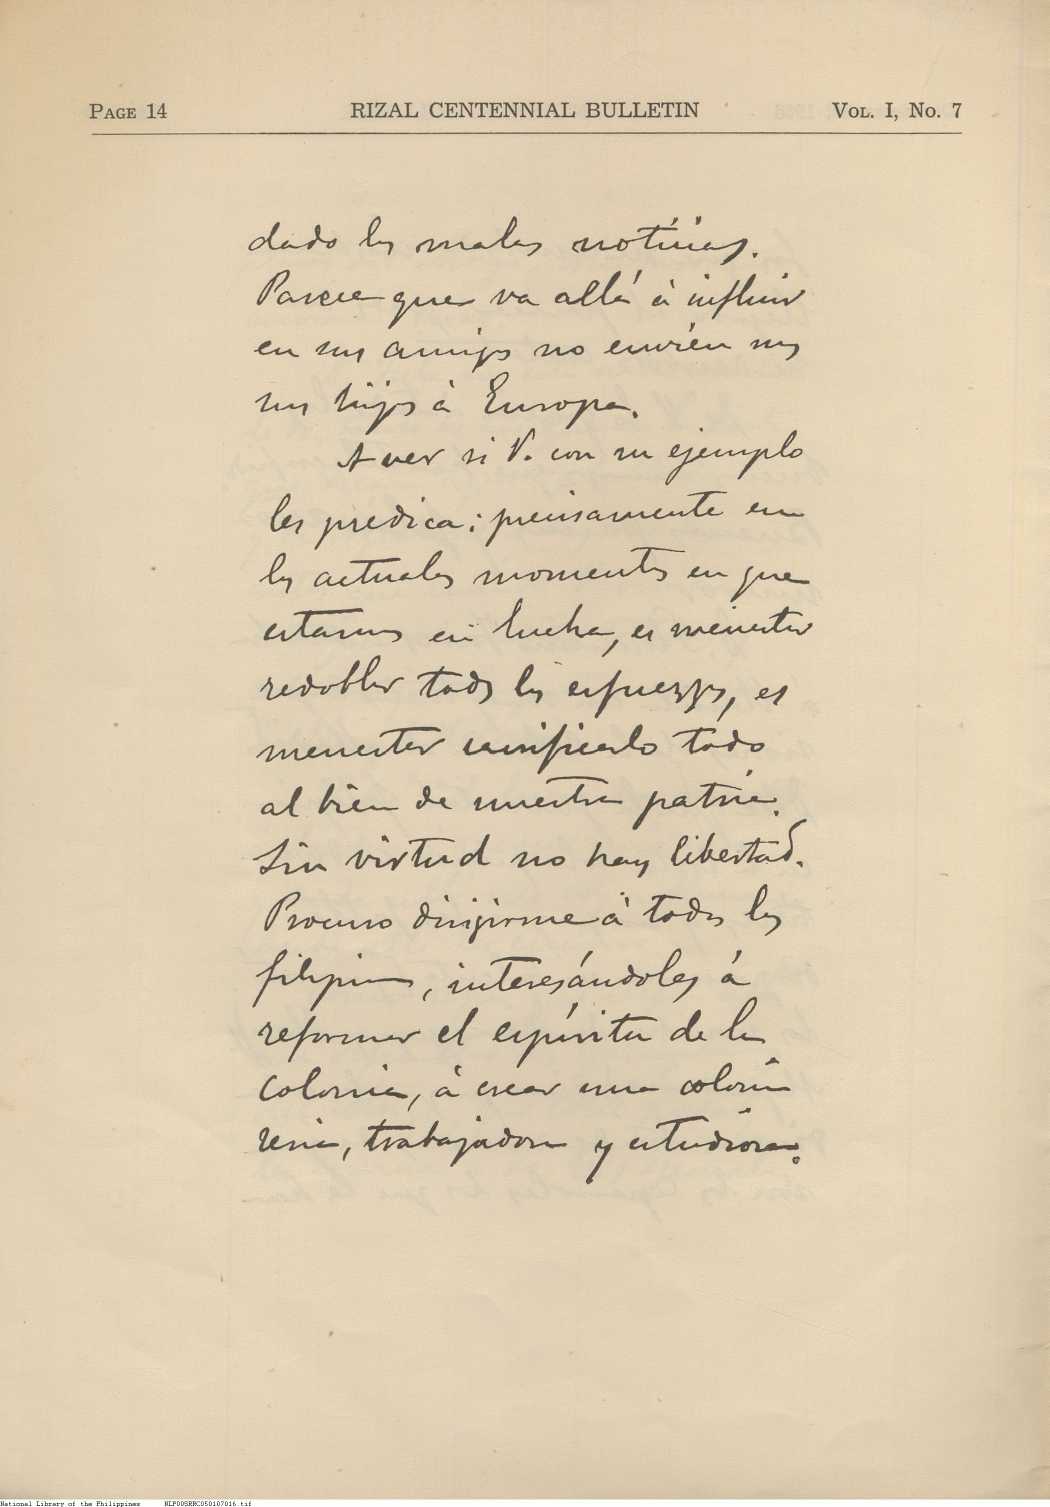 PAGE 14 RIZAL CENTENNIAL BULLETIN VOL. I, NO. 7
dado las malas noticias.
Parece que va allá á influir
en sus amigos no envíen mas
sus hijos á Europa.
A ver si V. con su ejemplo
les predica; precisamente en
los actuales momentos en que
estamos en lucha, es menester
redoblar todos los esfuerzos, es
menester sacrificarlo todo
al bien de nuestra patria.
Sin virtud no hay libertad.
Procuro dirigirme á todos los
filipinos, interesándoles á
reformar el espíritu de la
colonia, á crear una colonia
seria, trabajadora y estudiosa.
National Library of the Philippines NLP00SRRC050107016.tif